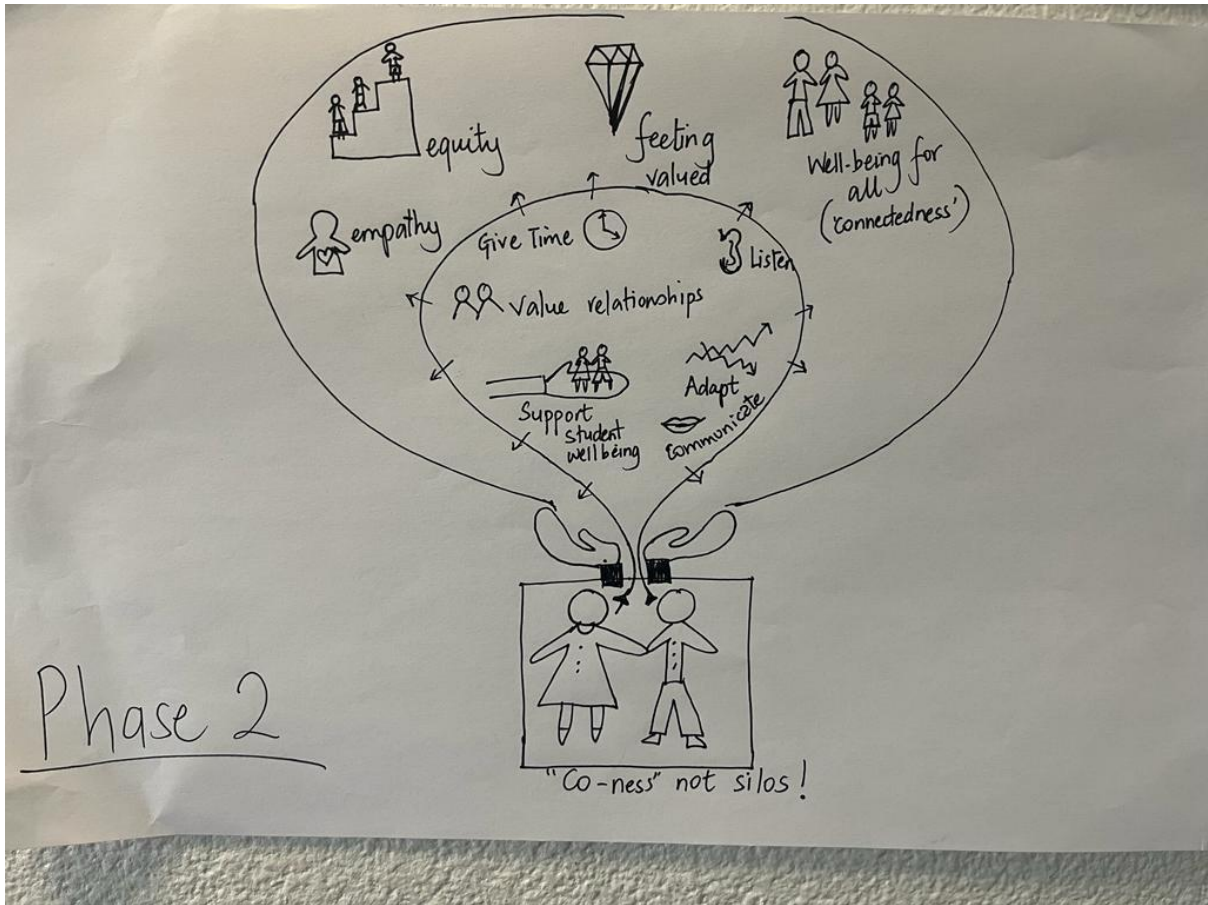 equity
feeling
valued
Well-being for
all
('connectedness')
empathy
Give Time
Listen
Value relationships
Support
student
wellbeing
Adapt
Communicate
Phase 2
"Co-ness" not silos!